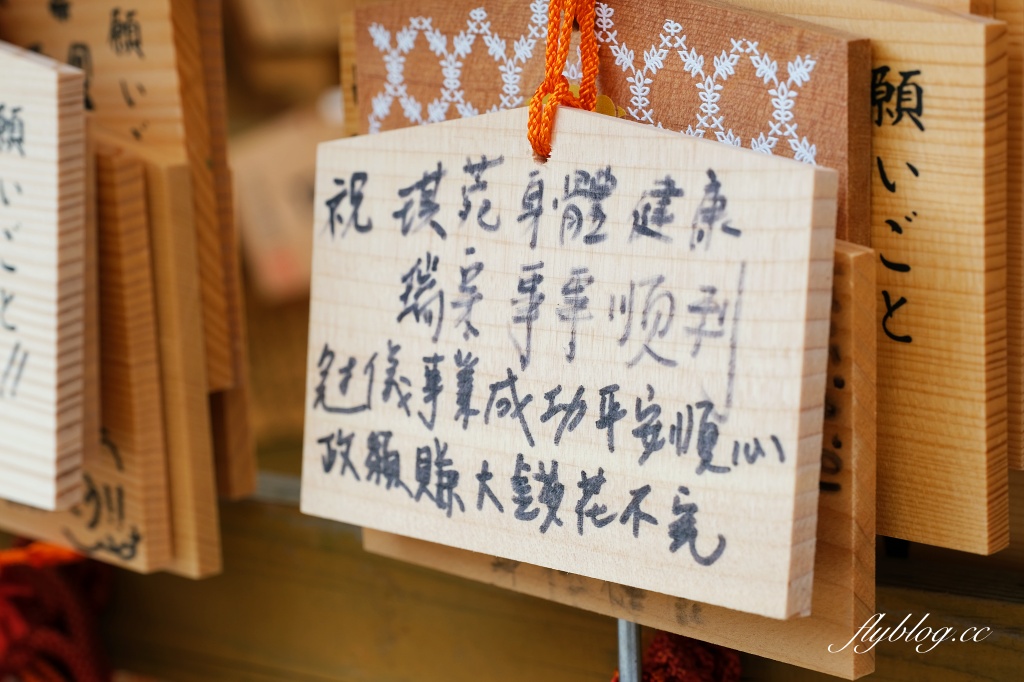 祝 琪苑 身體 健康
瑞 事事順利
儀事業成功平安順心
政 賺大錢花不完
願いごと
願い
願いごと!!
flyblog.cc